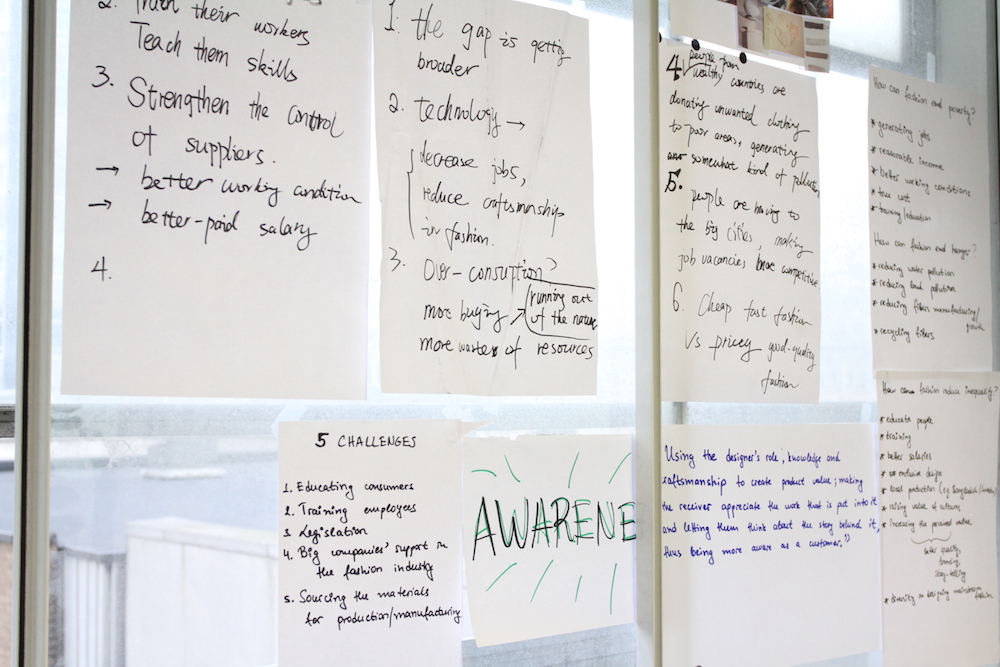 2. Train their workers
Teach them skills
3. Strengthen the control
of suppliers.
→ better working condition
→ better-paid salary
4.
1. the gap is gettig
broader
2. technology →
decrease jobs,
reduce craftsmanship
in fashion.
3. Over-consuption?
more buying
running out
of the nature
more wastes of resources
4. people from
wealthy countries are
donating unwanted clothing
to poor areas, generating
somewhat kind of pollution,
5. people are having to
the big cities, making
job vacancies more competitive
6. Cheap fast fashion
Vs pricey good-quality
fashion
How can fashion end poverty?
* generating jobs
* reasonable income
* better working conditions
* true cost
* training/education
How can fashion end hunger?
* reducing water pollution
* reducing land pollution
* reducing fibers manufacturing/
growth
* recycling fibers
5 CHALLENGES
1. Educating consumers
2. Training employees
3. Legislation
4. Big companies' support in
the fashion industry
5. Sourcing the materials
for production/manufacturing
AWARENE
Using the designer's role, knowledge and
craftsmanship to create product value; making
the receiver appreciate the work that is put into it
and letting them think about the story behind it,
thus being more aware as a customer.
How can fashion reduce inequality?
* educate people
* training
* better salaries
* exclusive design
* local production (eg. Bangladesh
* raising value of cultures
* increasing the perceived value
better quality,
branding,
story-telling
* diversity in designing mainstream
fashion